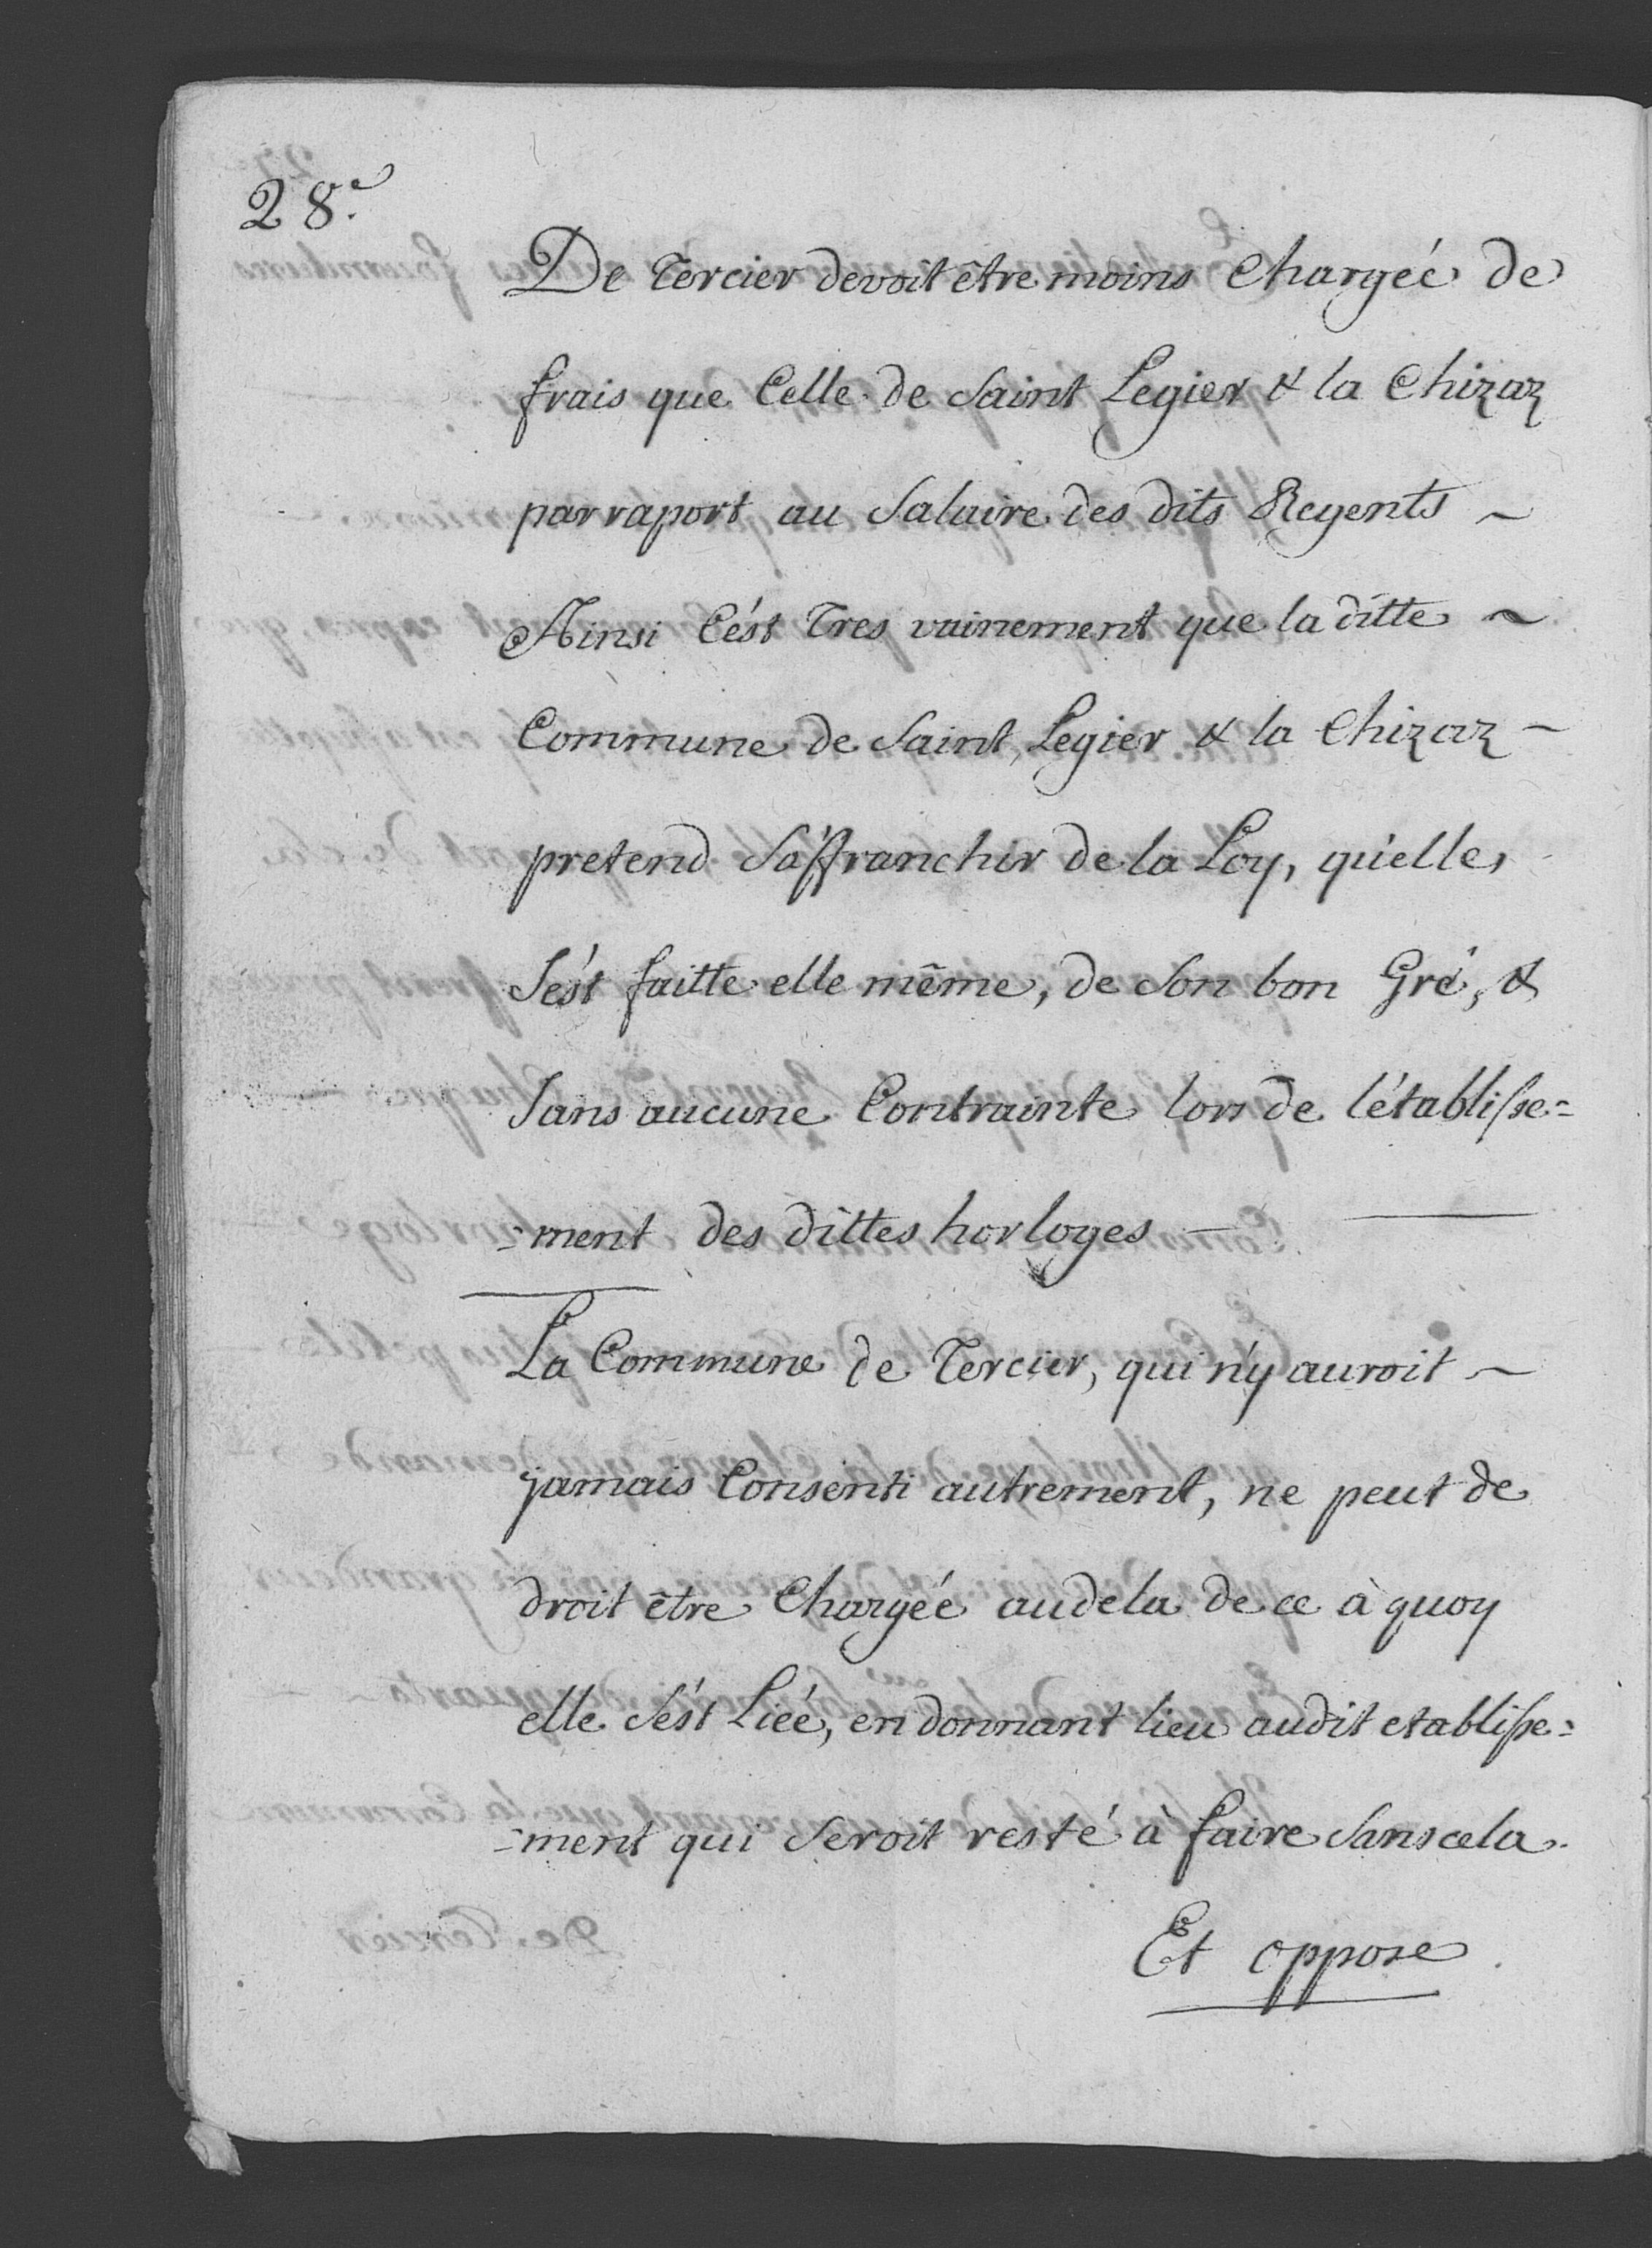 28.e
De Tercier devoit être moins Chargéé de
frais que Celle de Saint Legier & la Chizaz
par raport au Salaire des dits Regents ~
Ainsi C'ést Tres vainement que la ditte ~
Commune de Saint Legier & la Chizaz -
pretend S'áffranchir de la Loy, qu'elle,
S'ést faitte elle même, de Son bon Gré, &
Sans aucune Contrainte lors de l'établisse=
=ment des dittes horloges —
La Commune de Tercier, qui n'y auroit ~
jamais Consenti autrement, ne peut de
droit être Chargéé au dela de ce à quoy
elle S'ést Liéé, en donnant lieu au dit etablisse=
=ment qui Seroit resté à faire Sans cela.
Et oppose